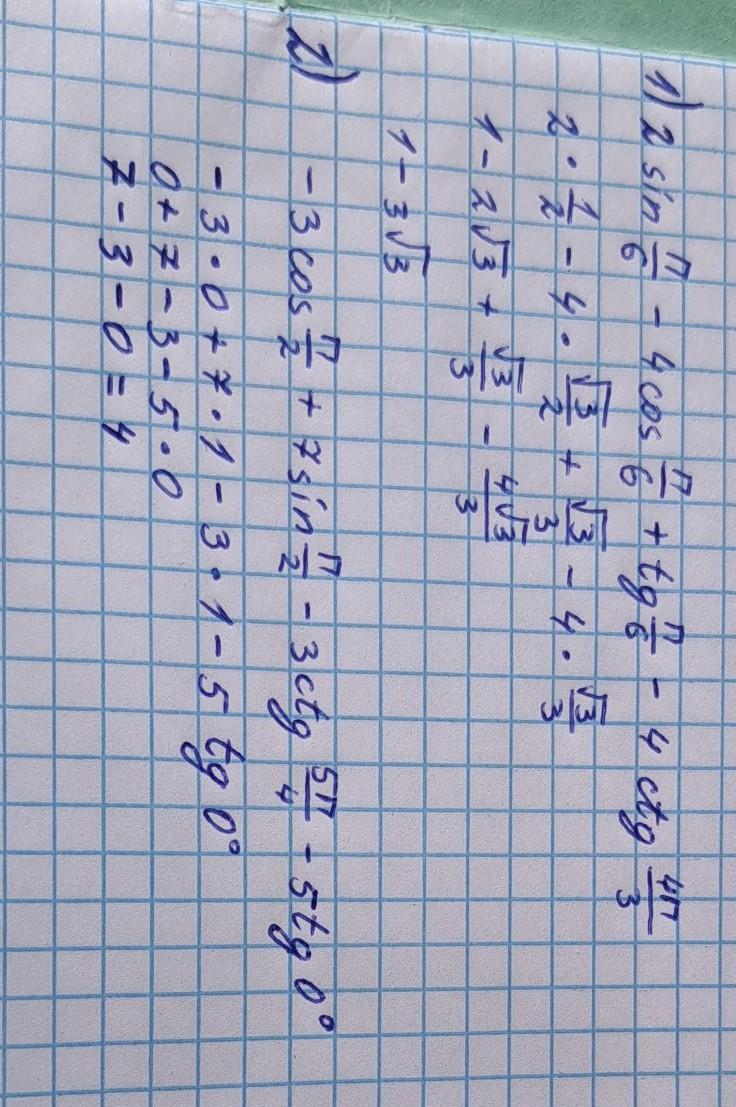 1) 2 sin π/6 - 4 cos π/6 + tg π/6 - 4 ctg 4π/3
2 · 1/2 - 4 · √3/2 + √3/3 - 4 · √3/3
1 - 2√3 + √3/3 - 4√3/3
1 - 3√3
2) - 3 cos π/2 + 7 sin π/2 - 3 ctg 5π/4 - 5 tg 0°
- 3 · 0 + 7 · 1 - 3 · 1 - 5 tg 0°
0 + 7 - 3 - 5 · 0
7 - 3 - 0 = 4